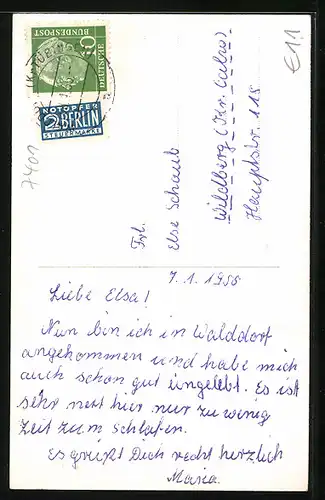 €11
7401
DEUTSCHE
BUNDESPOST
10
NOTOPFER
2 BERLIN
STEUERMARKE
Frl.
Else Schaub
Wildberg (Kr. Calw)
Hauptstr. 118
7.1.1956
Liebe Elsa!
Nun bin ich in Walddorf
angekommen und habe mich
auch schon gut eingelebt. Es ist
sehr nett hier nur zu wenig
Zeit zum schlafen.
Es grüßt Dich recht herzlich
Maria.